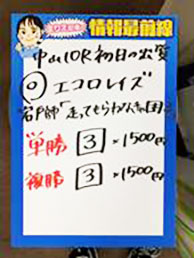 情報最前線
中山10R 初日の出賞
◎エコロレイズ
岩戸師「走ってもらわんと困る」
単勝 3 ×1500円
複勝 3 ×1500円